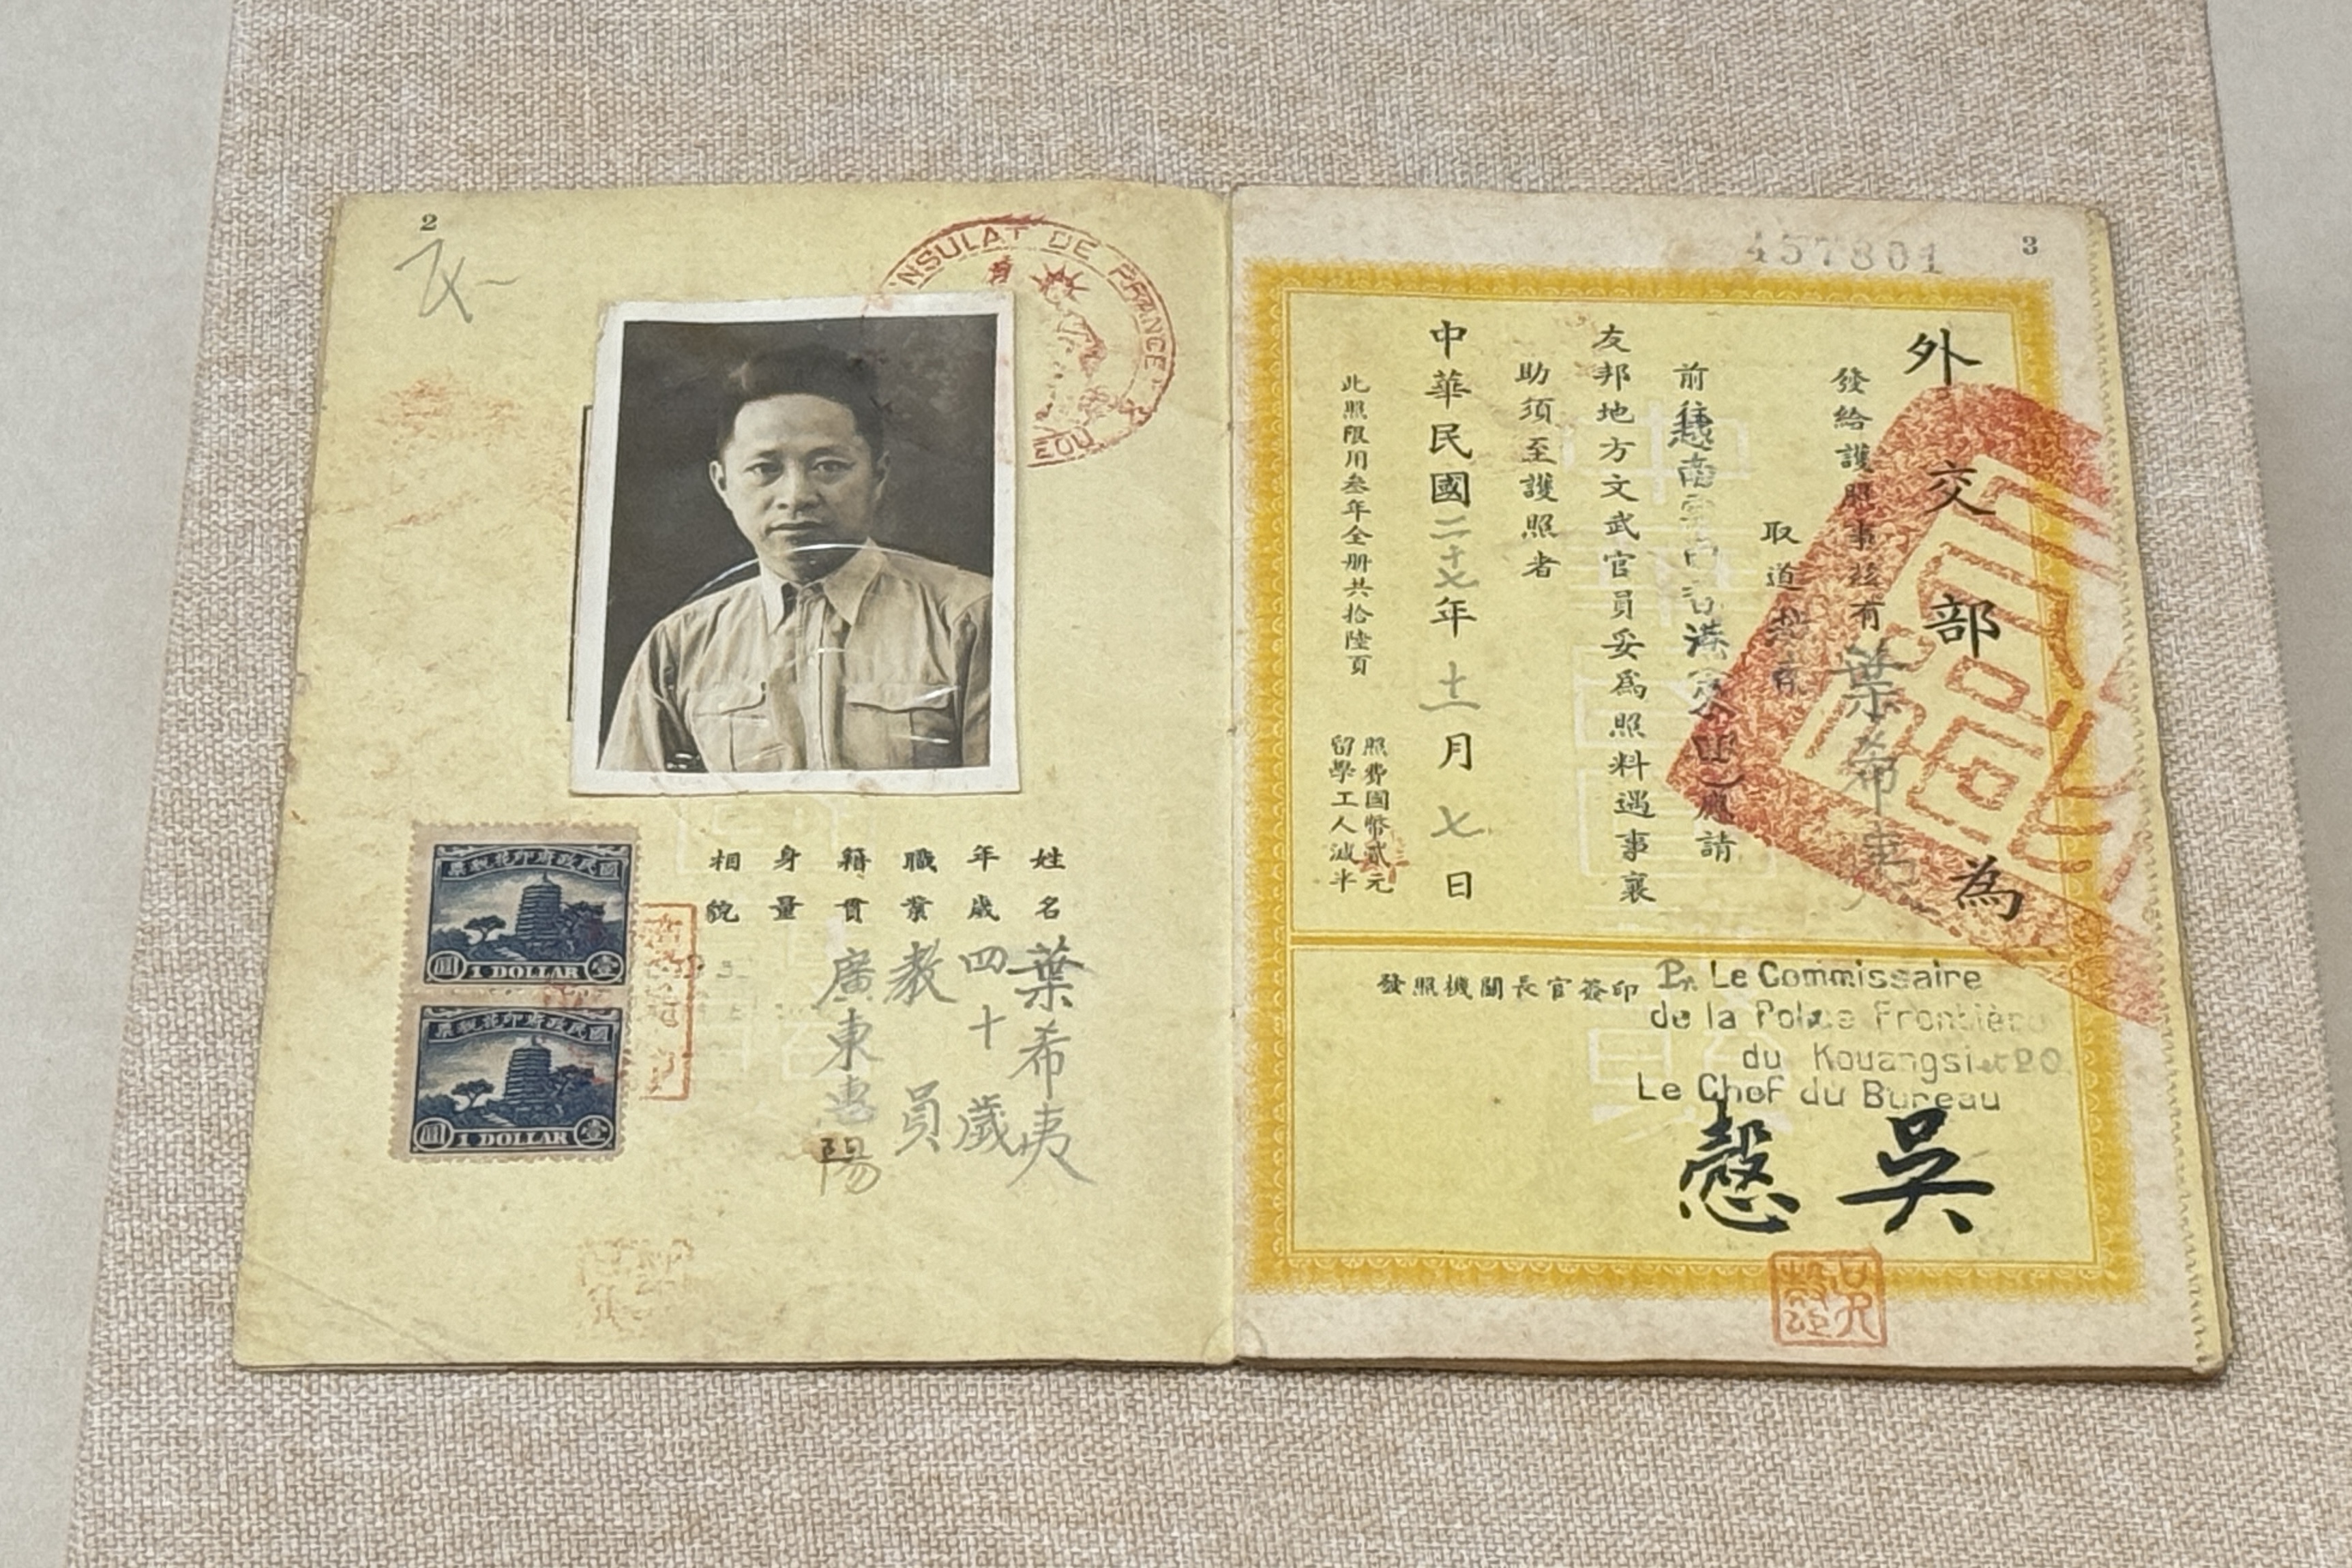 2
NSULAT DE FRANCE
EOU
姓名 葉希夷
年歲 四十歲
職業 教員
籍貫 廣東惠陽
身量
相貌
國民政府印花稅票
圓 1 DOLLAR 壹
國民政府印花稅票
圓 1 DOLLAR 壹
457801
3
外交部為
發給護照事茲有葉希夷
取道
前越南
港
請
友邦地方文武官員妥為照料遇事襄
助須至護照者
中華民國二十七年十一月七日
此照限用叁年全册共拾陸頁
照費國幣貳元
留學工人減半
發照機關長官簽印
Pr. Le Commissaire
de la Police Frontière
du Kouangsi
Le Chef du Bureau
吳